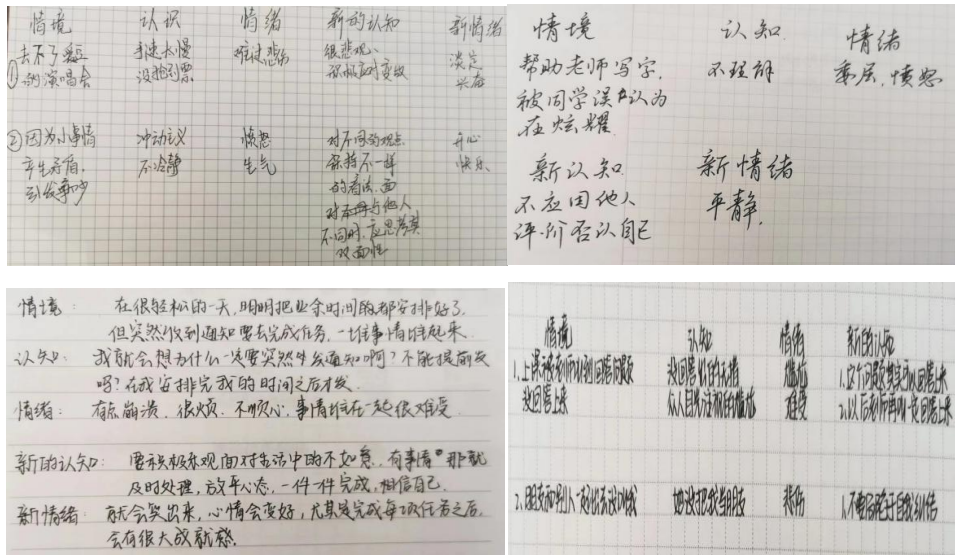 情境 认识 情绪 新的认知 新情绪
① 去不了
的演唱会
手速太慢
没抢到票
难过悲伤
很悲观、
积极应对变故
淡定
兴奋
② 因为小事情
产生矛盾,
到发争吵
冲动主义
不冷静
愤怒
生气
对不同的观点
保持不一样
的看法,面
对与他人
不同时,应思考其
双面性
开心
快乐
情境 认知 情绪
帮助老师写字,
被同学误认为
在炫耀
不理解
委屈,愤怒
新认知 新情绪
不应因他人
评价否认自己
平静.
情境: 在很轻松的一天,明明把业余时间都安排好了,
但突然收到通知要去完成任务,一堆事情堆起来.
认知: 我就会想为什么一定要突然发通知啊?不能提前发
吗?在我安排完我的时间之后才发.
情绪: 有点崩溃、很烦、不顺心,事情堆在一起很难受.
新的认知: 要积极乐观面对生活中的不如意,有事情那就
及时处理,放平心态,一件一件完成,相信自己.
新情绪: 就会笑出来,心情会变好,尤其是完成每项任务之后,
会有很大成就感.
情境 认知 情绪 新的认知
1.上课被老师叫到回答问题
没回答上来
众人目光注视的尴尬
尴尬
难受
1.这个问题其实可以回答上来
2.以后老师再叫一定回答上来
2.朋友和别人一起出去没叫我
她没把我当朋友
悲伤
1.不要局限于自我纠结